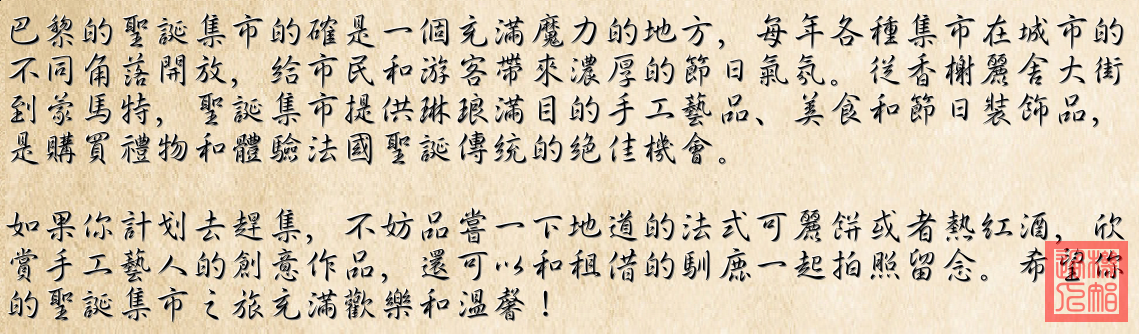 巴黎的聖誕集市的確是一個充滿魔力的地方，每年各種集市在城市的
不同角落開放，給市民和游客帶來濃厚的節日氣氛。從香榭麗舍大街
到蒙馬特，聖誕集市提供琳琅滿目的手工藝品、美食和節日裝飾品，
是購買禮物和體驗法國聖誕傳統的絕佳機會。
如果你計划去趕集，不妨品嘗一下地道的法式可麗餅或者熱紅酒，欣
賞手工藝人的創意作品，還可以和租借的馴鹿一起拍照留念。希望你
的聖誕集市之旅充滿歡樂和溫馨！